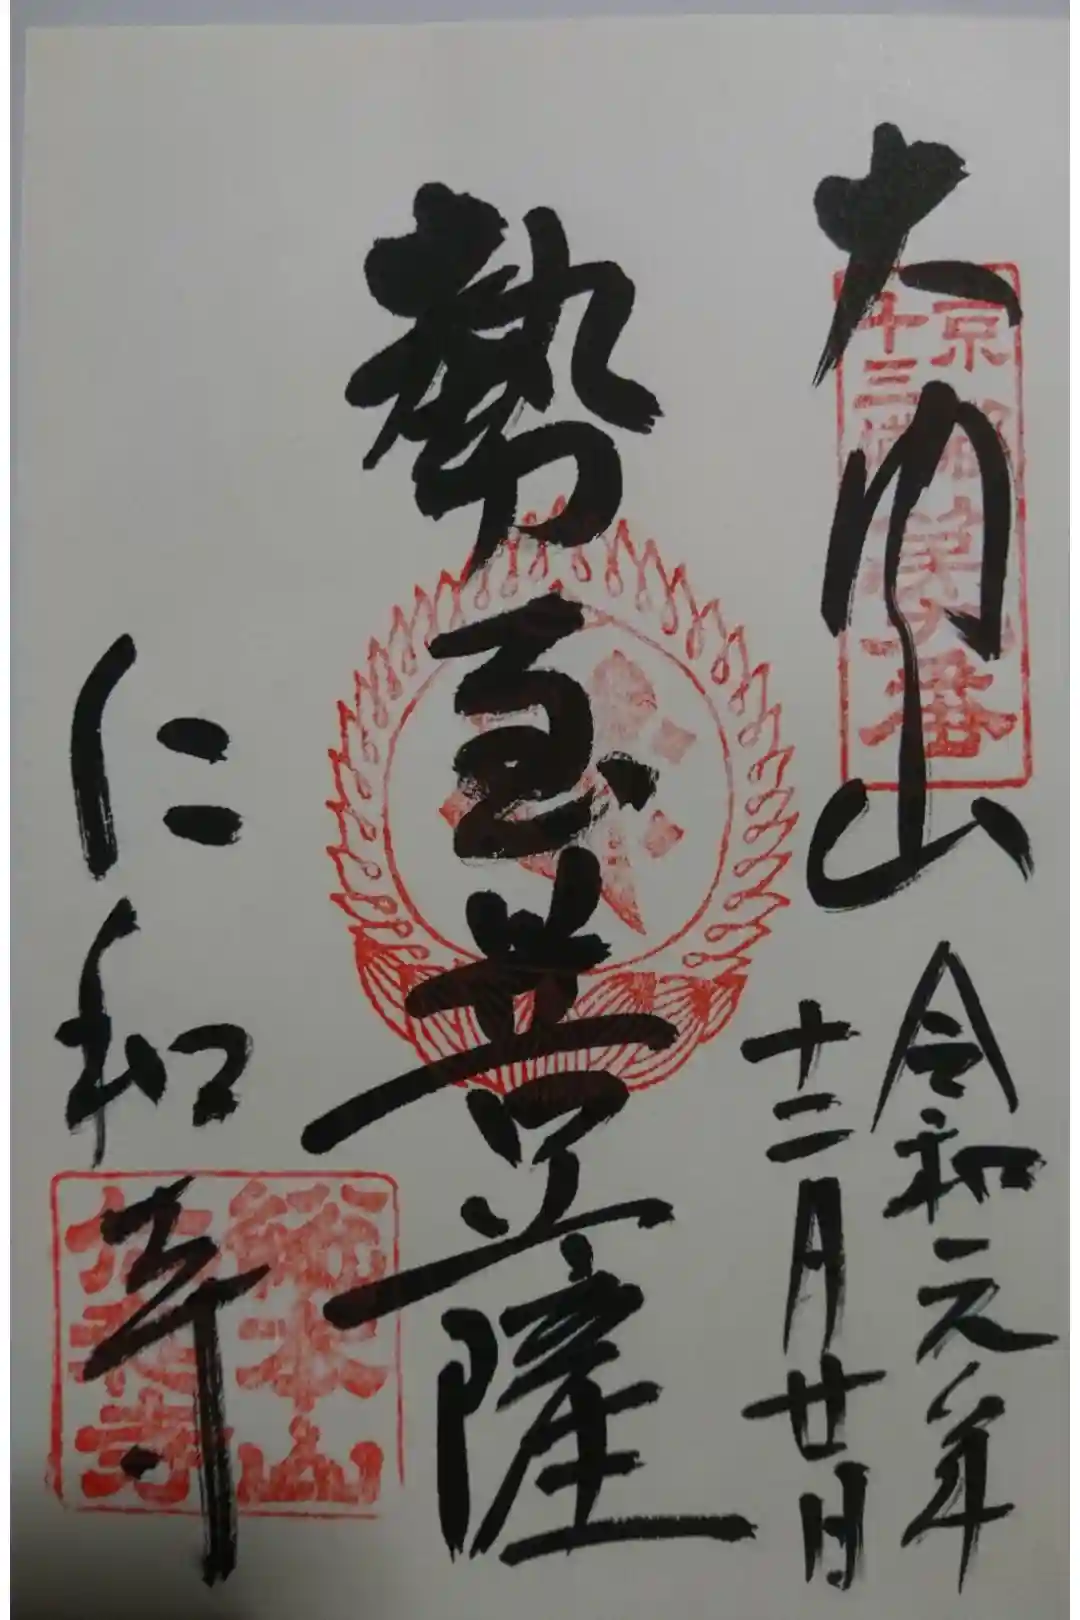 大内山
令和元年
十二月廿日
京都
十三佛
第九番
勢至菩薩
仁和寺
総本山
仁和寺